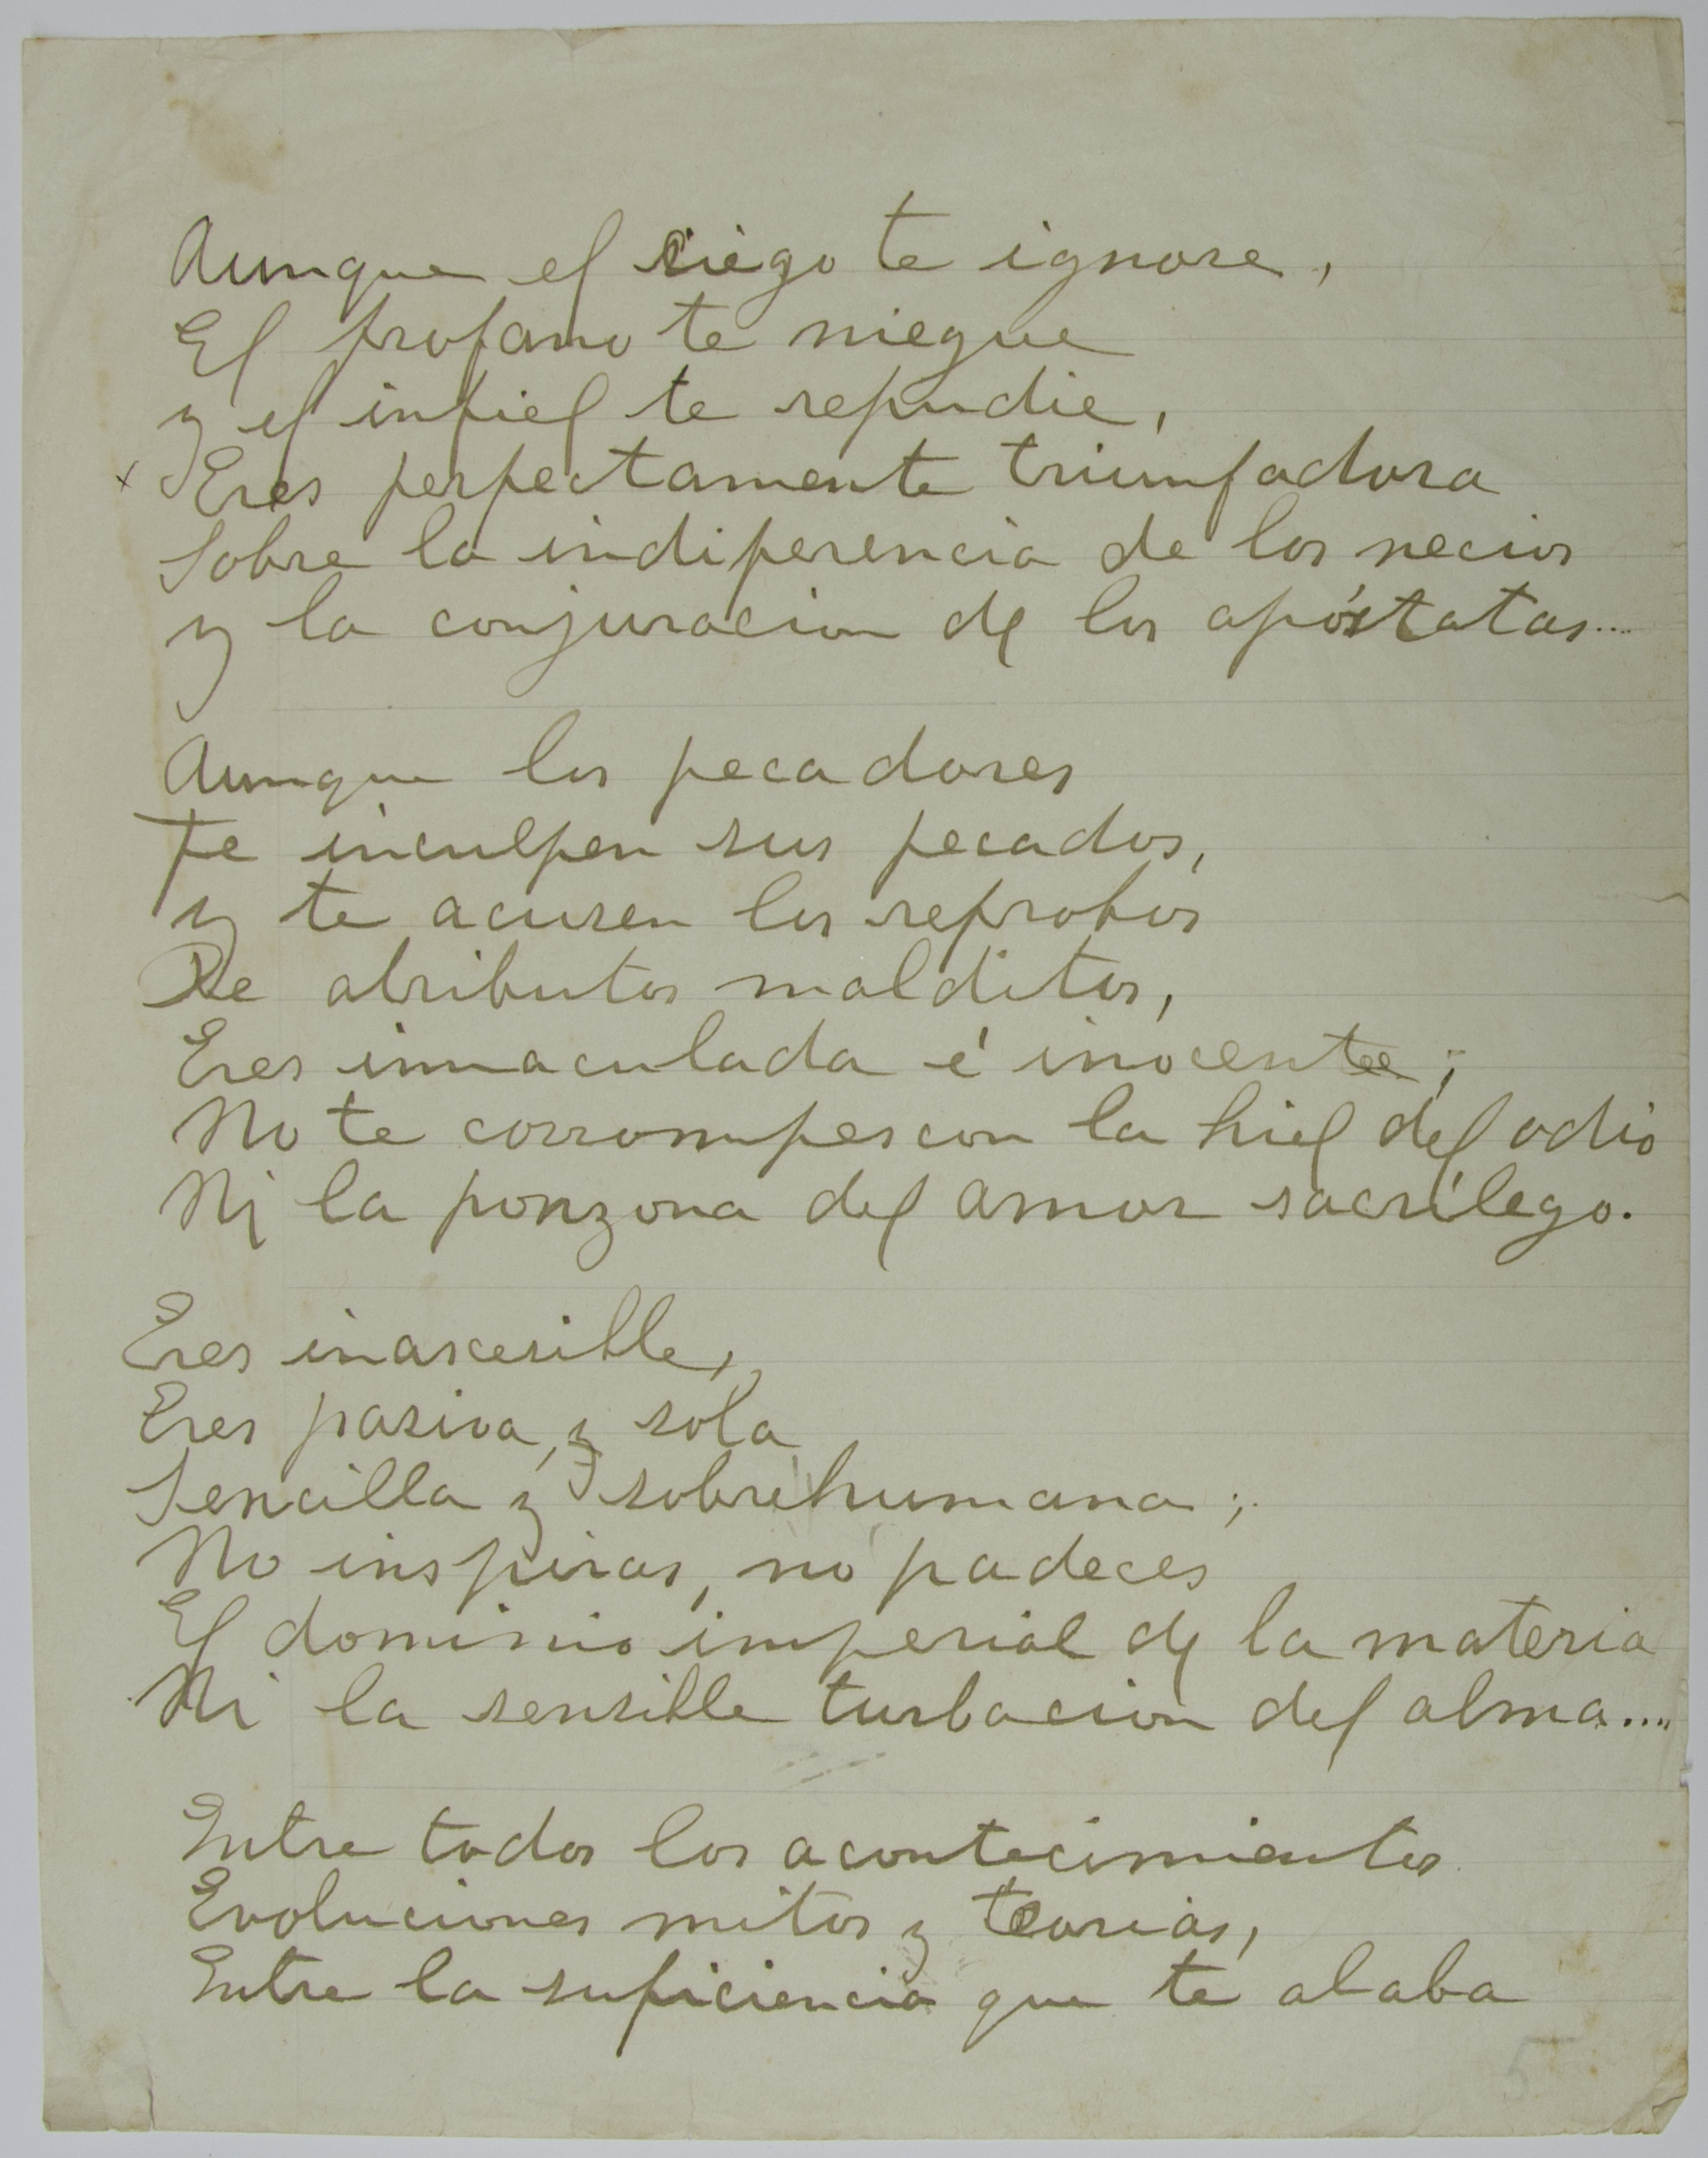 Aunque el ciego te ignore,
El profano te niegue
y el infiel te repudie,
x Eres perfectamente triumfadora
Sobre la indiferencia de los necios
y la conjuracion de los apóstatas...
Aunque los pecadores
Te inculpen sus pecados,
y te acusen los reprobos
De atributos malditos,
Eres inmaculada é inocente;
No te corrompes con la hiel del odio
Ni la ponzona del amor sacrílego.
Eres inascesible,
Eres pasiva, y sola
Sencilla y sobrehumana;
No inspiras, no padeces
El dominio imperial de la materia
Ni la sensible turbacion del alma....
Entre todos los acontecimientos
Evoluciones mitos y teorias,
Entre la suficiencia que te alaba
5